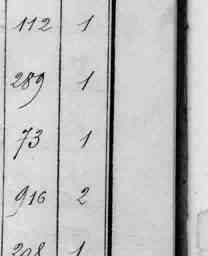 112 1
289 1
73 1
916 2
208 1